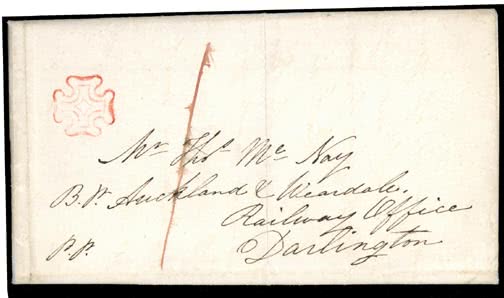 Mr Thos Mc Nay
Bp. Auckland & Weardale.
Railway Office
P.P. Darlington